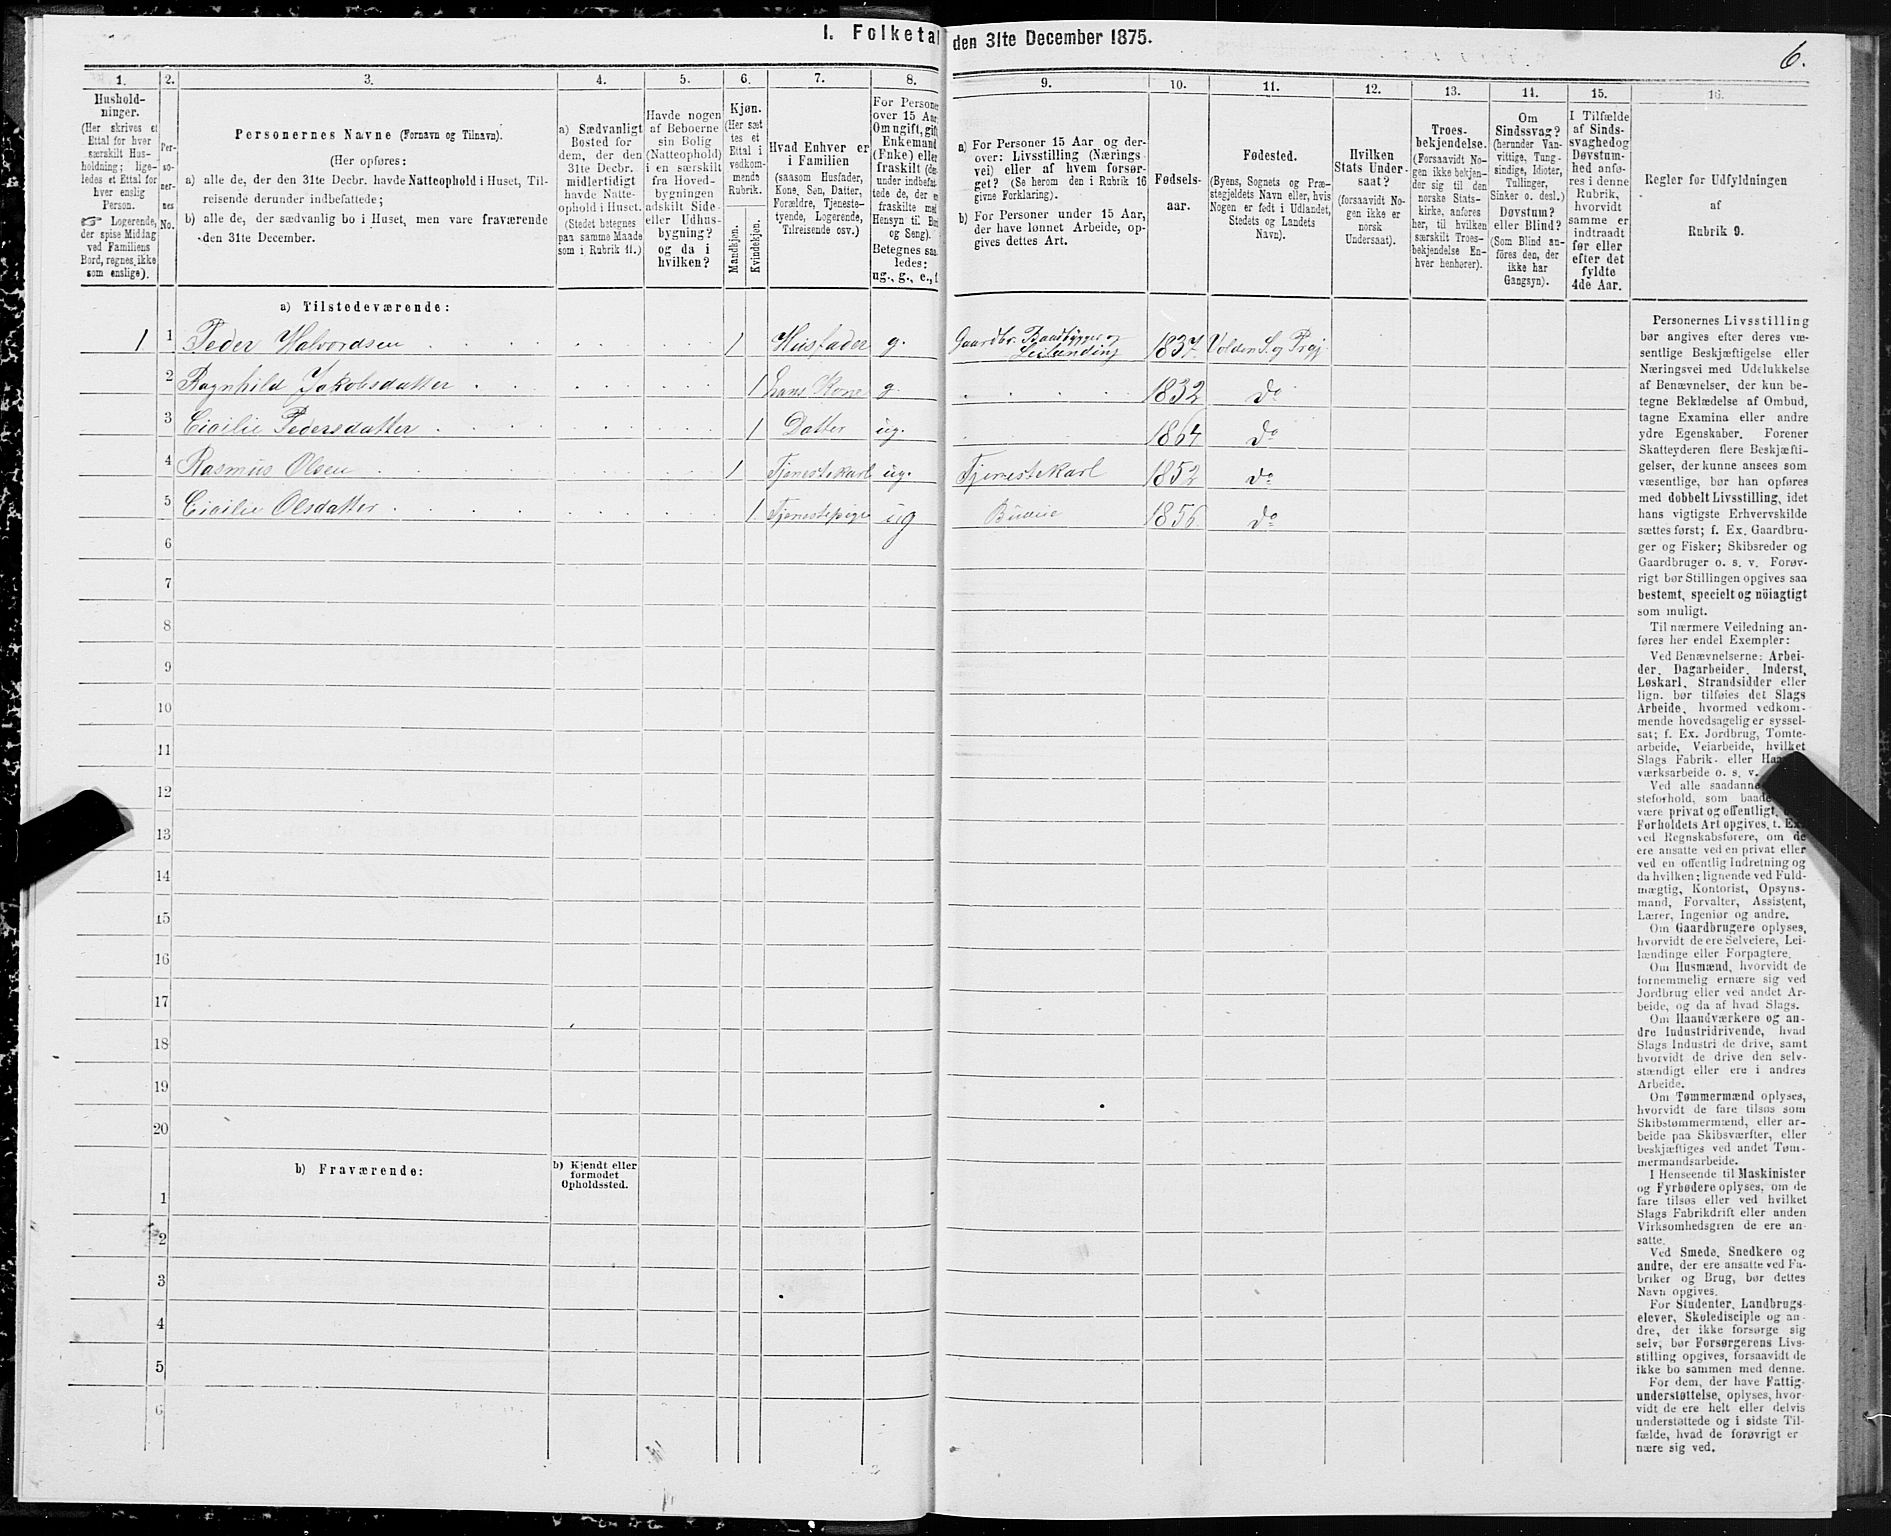 I. Folketal den 31te December 1875.
6.
1.
2.
3.
4.
5.
6.
7.
8.
9.
10.
11.
12.
13.
14.
15.
16.
Hushold-
ninger.
(Her skrives et
Ettal for hver
særskilt Hus-
holdning; lige-
ledes et Ettal for
hver enslig
Person.
☞ Logerende,
der spise Middag
ved Familiens
Bord, regnes ikke
som enslige).
Per-
so-
ner-
nes
No.
Personernes Navne (Fornavn og Tilnavn).
(Her opføres:
a) alle de, der den 31te Decbr. havde Natteophold i Huset, Til-
reisende derunder indbefattede;
b) alle de, der sædvanlig bo i Huset, men vare fraværende
den 31te December.
a) Sædvanligt
Bosted for
dem, der den
31te Decbr.
midlertidigt
havde Natte-
ophold i Huset.
(Stedet betegnes
paa samme Maade
som i Rubrik 11.)
Havde nogen
af Beboerne
sin Bolig
(Natteophold)
i en særskilt
fra Hoved-
bygningen
adskilt Side-
eller Udhus-
bygning?
og da i
hvilken?
Kjøn.
(Her sæt
tes et
Ettal i
vedkom-
mende
Rubrik.
Mandkjøn.
Kvindekjøn.
Hvad Enhver er
i Familien
(saasom Husfader,
Kone, Søn, Datter,
Forældre, Tjeneste-
tyende, Logerende,
Tilreisende osv.)
For Personer
over 15 Aar:
Om ugift, gift,
Enkemand
(Enke) eller
fraskilt
Betegnes saa-
ledes:
ug., g., e., f.
a) For Personer 15 Aar og der-
over: Livsstilling (Nærings-
vei) eller af hvem forsør-
get? (Se herom den i Rubrik 16
givne Forklaring).
b) For Personer under 15 Aar,
der have lønnet Arbeide, op-
gives dettes Art.
Fødsels-
aar.
Fødested.
(Byens, Sognets og Præ-
stegjeldets Navn eller, hvis
Nogen er født i Udlandet,
Stedets og Landets
Navn).
Hvilken
Stats Under-
saat?
(forsaavidt No-
gen ikke er
norsk
Undersaat).
Troes-
bekjendelse.
(Forsaavidt No-
gen ikke bekjen-
der sig til den
norske Stats-
kirke, anføres
her, til hvilken
særskilt Troes-
bekjendelse En-
hver henhører).
Om
Sindssvag?
(herunder Van-
vittige, Tung-
sindige, Idioter,
Tullinger,
Sinker o. desl.)
Døvstum?
eller Blind?
(Som Blind an-
føres den, der
ikke har
Gangsyn).
I Tilfælde
af Sinds-
svaghed og
Døvstum-
hed anfø-
res i denne
Rubrik,
hvorvidt
samme er
indtraadt
før eller
efter det
fyldte
4de Aar.
Regler for Udfyldningen
af
Rubrik 9.
a) Tilstedeværende:
1 1 Peder Halvordsen 1 Husfader g. Gaardbr. Baadbygger og Leilænding 1837 Volden S. og Prgj.
2 Ragnhild Jakobsdatter 1 hans Kone g 1832 do
3 Cicilie Pedersdatter 1 Datter ug. 1864 do
4 Rasmus Olsen 1 Tjenestekarl ug. Tjenestekarl 1852 do
5 Cicilie Olsdatter 1 Tjenestepige ug Budeie 1856 do
6
7
8
9
10
11
12
13
14
15
16
17
18
19
20
b) Fraværende:
b) Kjendt eller
formodet
Opholdssted.
1
2
3
4
5
6
Personernes Livsstilling
bør angives efter deres væ-
sentlige Beskjæftigelse eller
Næringsvei med Udelukkelse
af Benævnelser, der kun be-
tegne Beklædelse af Ombud,
tagne Examina eller andre
ydre Egenskaber. Forener
Skatteyderen flere Beskjæfti-
gelser, der kunne ansees som
væsentlige, bør han opføres
med dobbelt Livsstilling, idet
hans vigtigste Erhvervskilde
sættes først; f. Ex. Gaardbru-
ger og Fisker; Skibsreder og
Gaardbruger o. s. v. Forøv-
rigt bør Stillingen opgives saa
bestemt, specielt og nöiagtigt
som muligt.
Til nærmere Veiledning an-
føres her endel Exempler:
Ved Benævnelserne: Arbei-
der, Dagarbeider, Inderst,
Løskarl, Strandsidder eller
lign. bør tilføies det Slags
Arbeide, hvormed vedkom-
mende hovedsagelig er syssel-
sat; f. Ex. Jordbrug, Tomte-
arbeide, Veiarbeide, hvilket
Slags Fabrik- eller
værksarbeide o. s. v.
Ved alle saadanne
steforhold, som baade
være privat og offentligt,
Forholdets Art opgives, f. Ex.
ved Regnskabsførere, om de
ere ansatte ved en privat eller
ved en offentlig Indretning og
da hvilken; lignende ved Fuld-
mægtig, Kontorist, Opsyns-
mand, Forvalter, Assistent,
Lærer, Ingeniør og andre.
Om Gaardbrugere oplyses,
hvorvidt de ere Selveiere, Lei-
lændinge eller Forpagtere.
Om Husmænd, hvorvidt de
fornemmelig ernære sig ved
Jordbrug eller ved andet Ar-
beide, og da af hvad Slags.
Om Haandværkere og an-
dre Industridrivende, hvad
Slags Industri de drive, samt
hvorvidt de drive den selv-
stændigt eller ere i andres
Arbeide.
Om Tømmermænd oplyses,
hvorvidt de fare tilsøs som
Skibstømmermænd, eller ar-
beide paa Skibsværfter, eller
beskjæftiges ved andet Tøm-
mermandsarbeide.
I Henseende til Maskinister
og Fyrbødere oplyses, om de
fare tilsøs eller ved hvilket
Slags Fabrikdrift eller anden
Virksomhedsgren de ere an-
satte.
Ved Smede, Snedkere og
andre, der ere ansatte ved Fa-
briker og Brug, bør dettes
Navn opgives.
For Studenter, Landbrugs-
elever, Skoledisciple og an-
dre, der ikke forsørge sig
selv, bør Forsørgerens Livs-
stilling opgives, forsaavidt de
ikke bo sammen med denne.
For dem, der have Fattig-
understøttelse, oplyses, hvor-
vidt de ere helt eller delvis
understøttede og i sidste Til-
fælde, hvad de forøvrigt er-
nære sig ved.